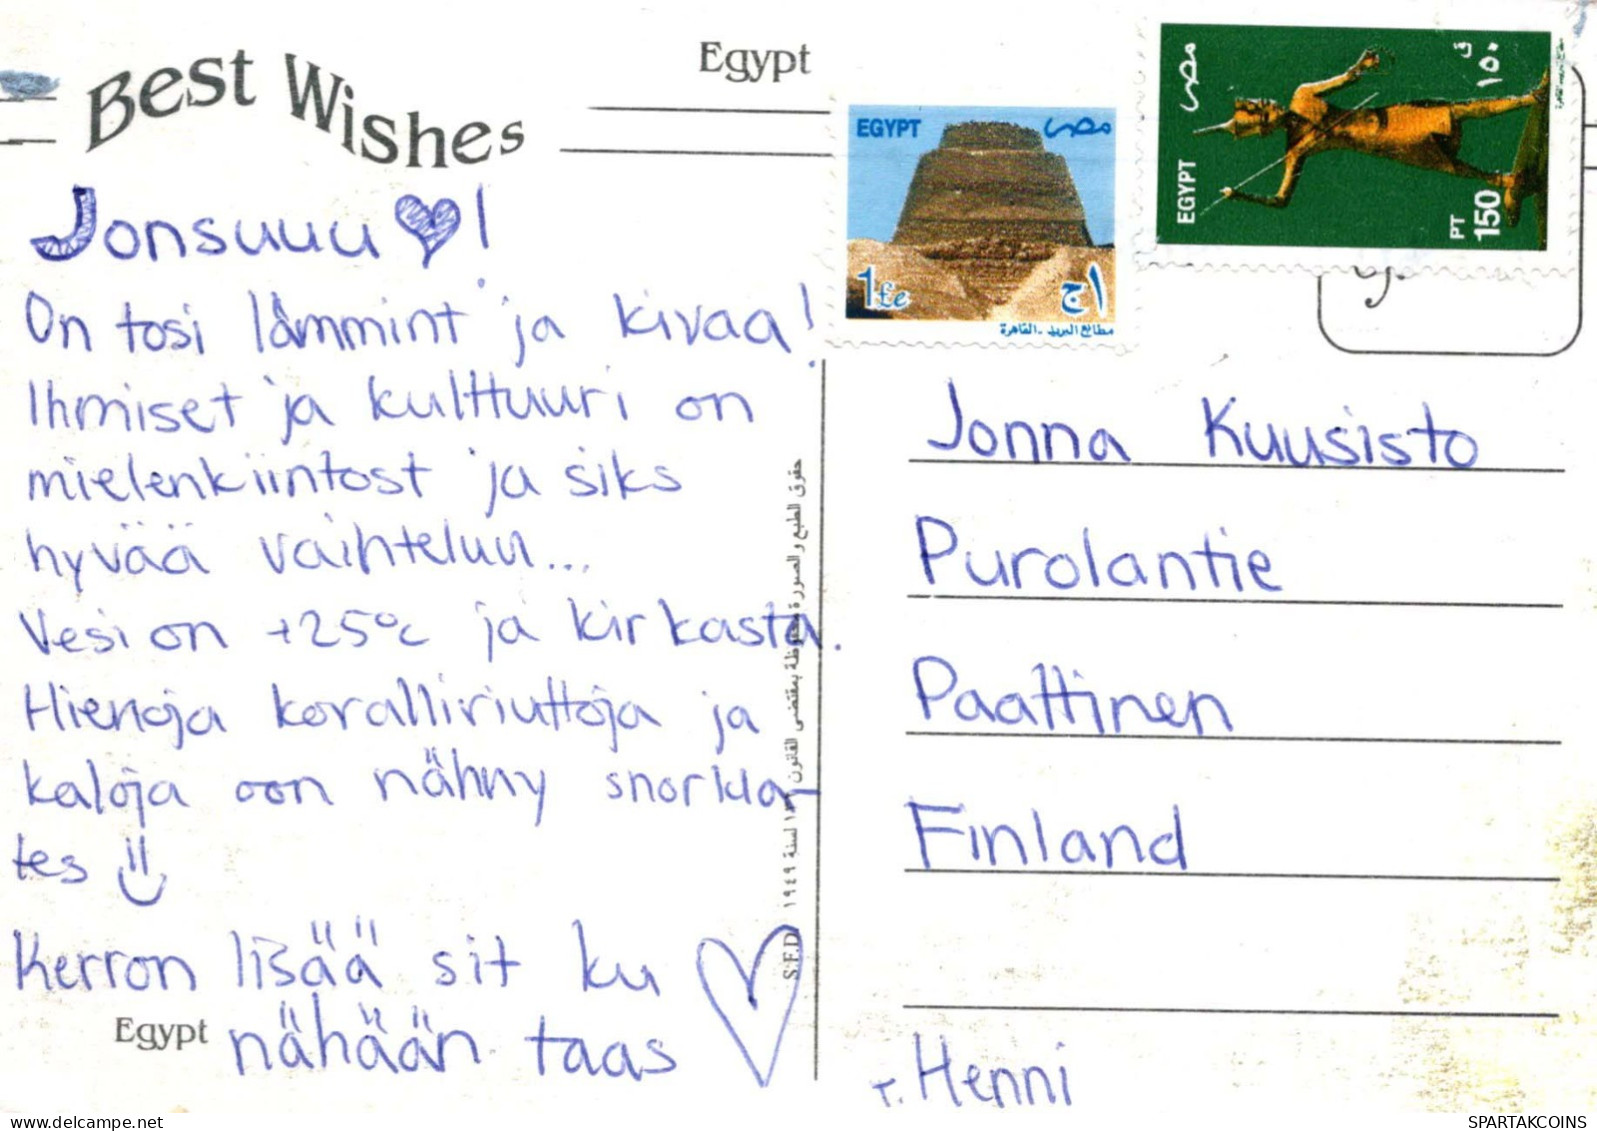 Best Wishes
Egypt
EGYPT مصر
1£e ١ج
مطابع البريد - القاهرة
مصر
EGYPT
PT 150
١٥٠ ق
Jonsuuu ♥!
On tosi lämmint ja kivaa!
Ihmiset ja kulttuuri on
mielenkiintost ja siks
hyvää vaihteluu...
Vesi on +25°c ja kirkasta.
Hienoja koralliriuttoja ja
kaloja oon nähny snorkla-
tes
Kerron lisää sit ku
nähään taas
Egypt
S.F.D
حقوق الطبع والصورة محفوظة بمقتضى القانون لسنة ١٩٤٩
Jonna Kuusisto
Purolantie
Paattinen
Finland
T. Henni
SPARTAKCOINS